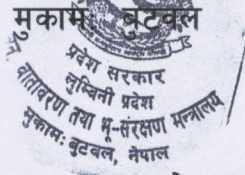 मुकाम: बुटवल
प्रदेश सरकार
लुम्बिनी प्रदेश
वातावरण तथा भू-संरक्षण मन्त्रालय
मुकाम: बुटवल, नेपाल